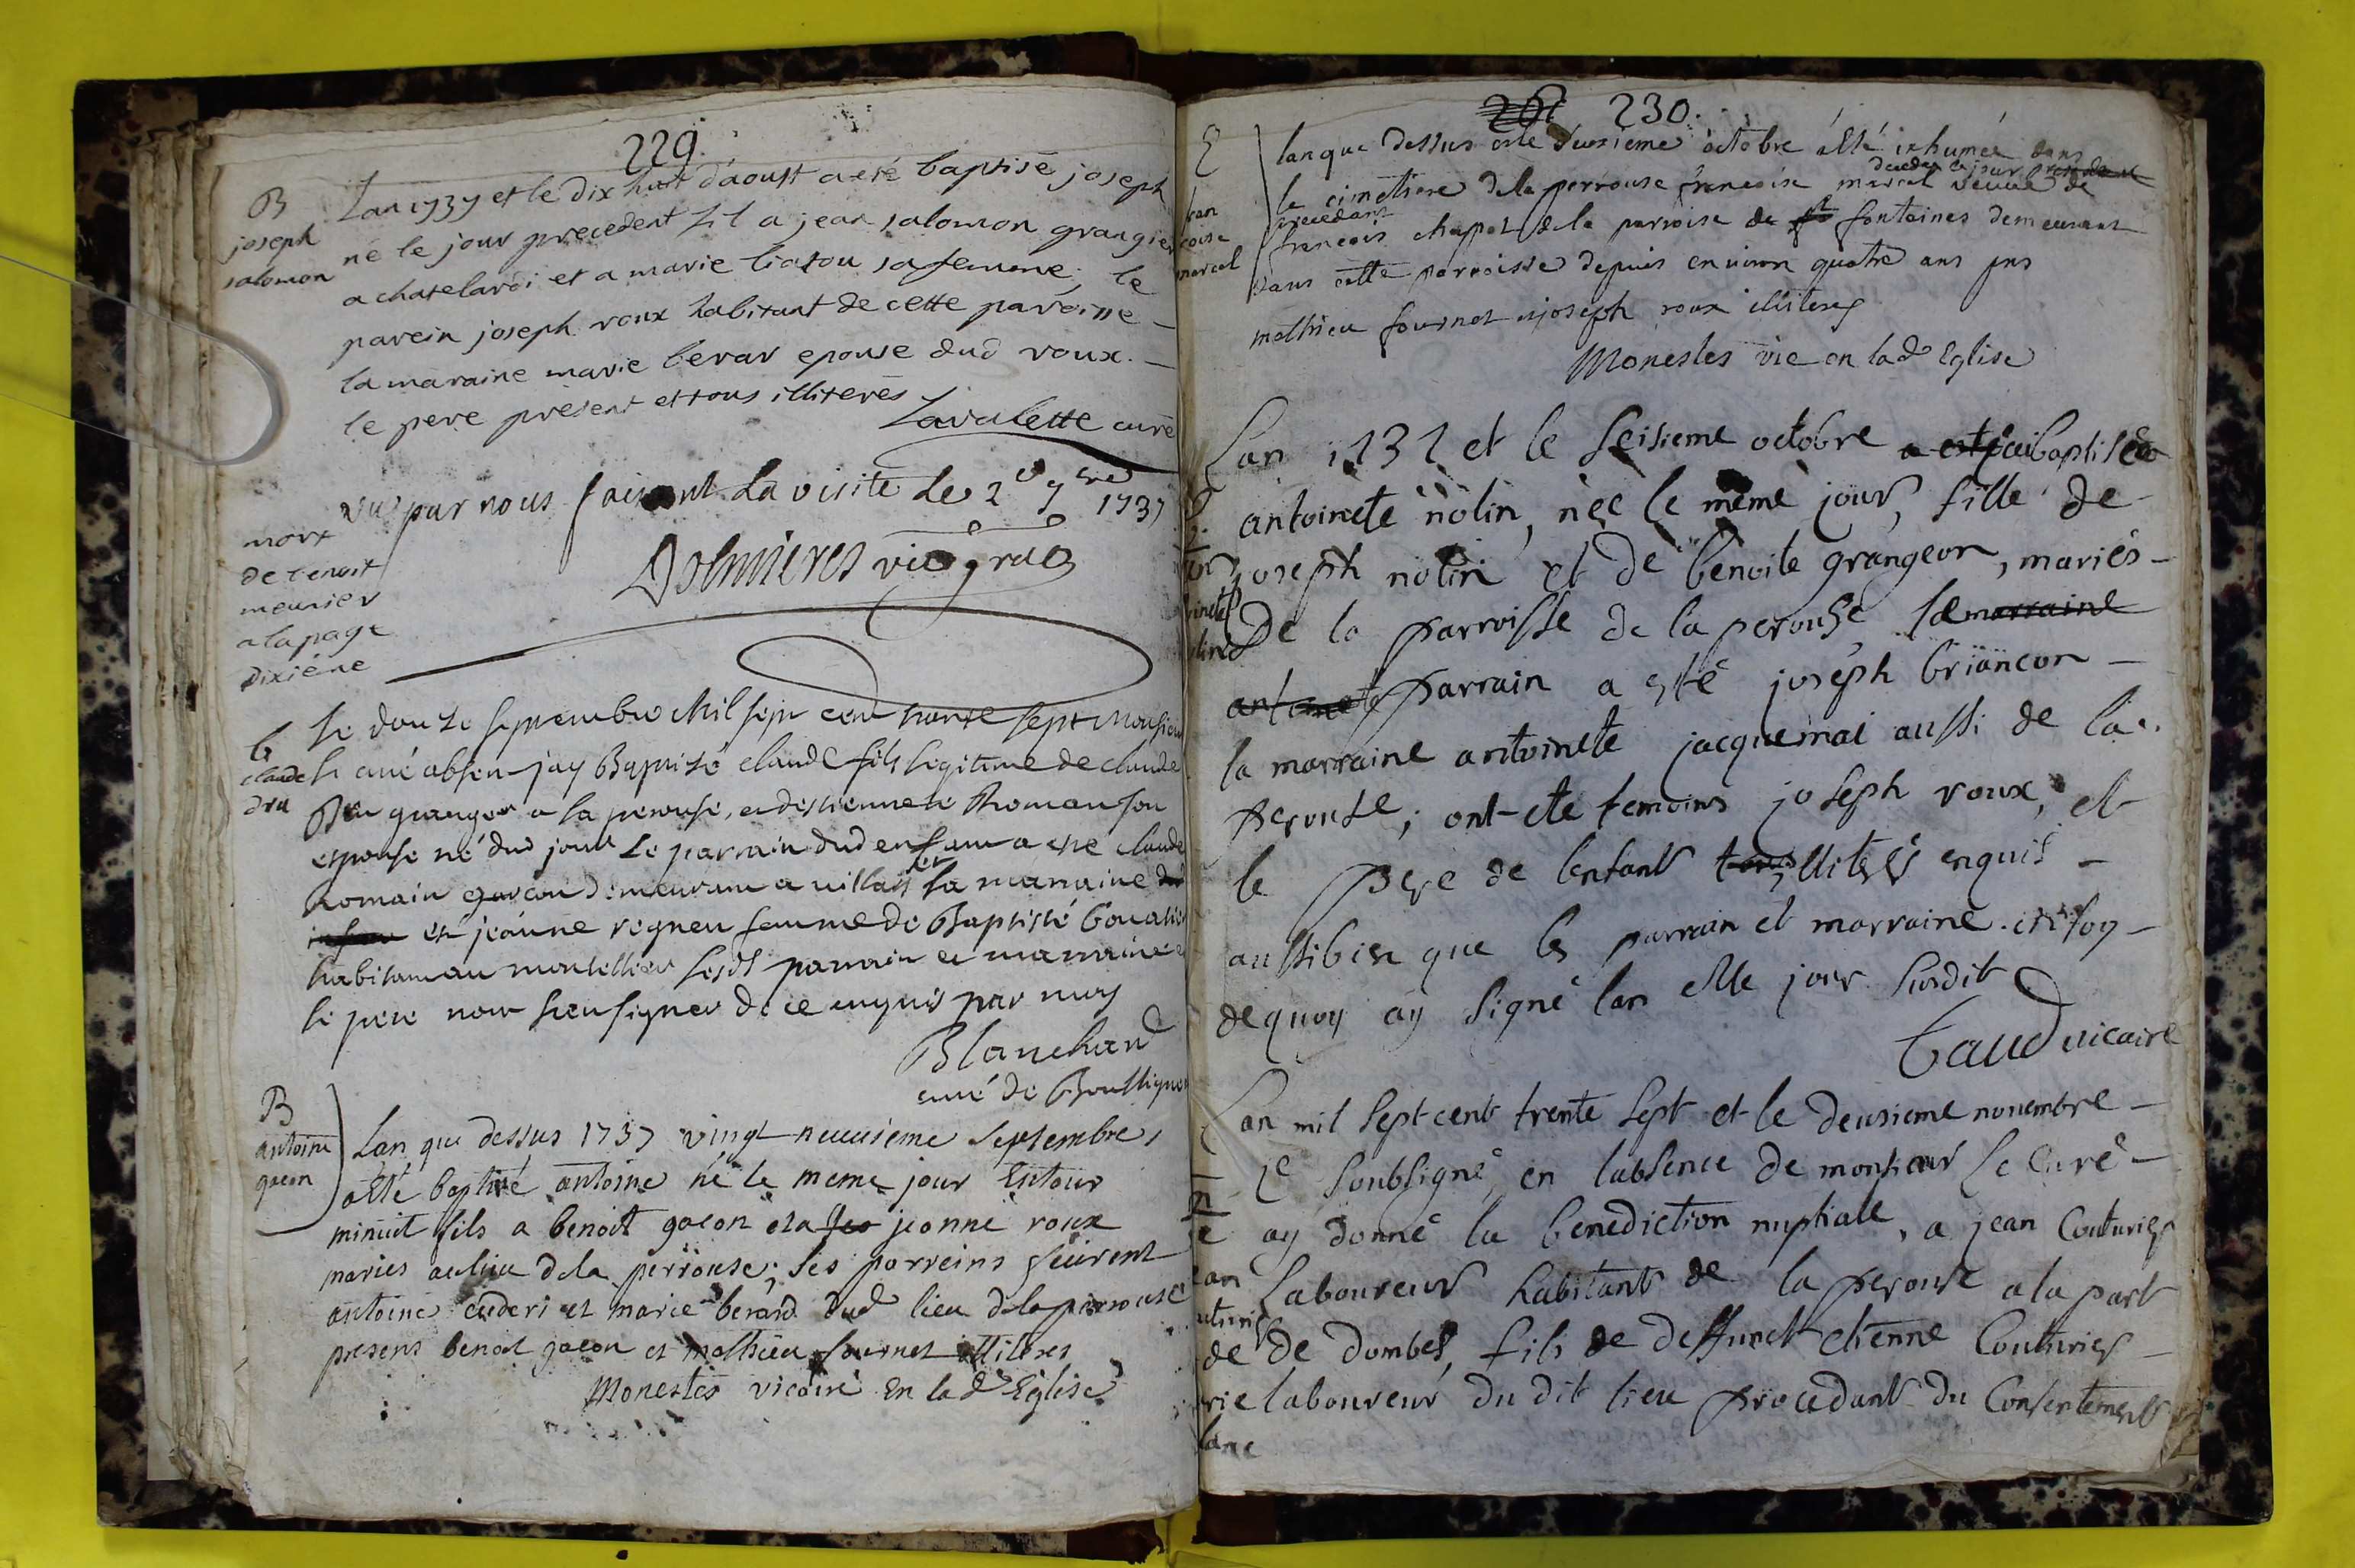 229.
B
joseph
salomon
Lan 1737 et le dix huit daoust a eté baptisé joseph
né le jour precedent fil a jean salomon grangier
a chatelardi et a marie liatou sa femme. le
parein joseph roux habitant de cette paroisse
la maraine marie berar epouse dud roux.
le pere present et tous illiteres
Lavalette curé
vu par nous faisant la visite le 2e 7bre 1737
Dolmieres vic gral
mort
de benoit
meunier
a la page
dixiéne
b
claude
dru
le douze septembre Mil sept cent trente sept Monsieur
le curé absen jay Baptisé claude fils legitime de claude
Dru granger a la perouse, et destiennete Roman son
espouse né dud jour le parrain dud enfant a esté claude
Romain garcon demeurant a villars et la marraine
est jeanne regneu femme de Baptiste
habitant au montellier lesds parrain et marraine et
le pere nont sceu signer de ce enquis par moy
Blanchard
curé de
B
antoine
gacon
Lan que dessus 1737 vingt neuvieme septembre,
a été baptisé antoine né le meme jour Entour
minuit fils a benoit gacon et a jeanne roux
mariés au lieu dela perrouse; ses parreins feurent
antoine et marie berard dud lieu dela perrouse
presens benoit gacon et mathieu fournet illiteres
Monestes vicaire En lad Eglise
230.
E
fran
coise
marcel
lan que dessus et le deuxieme octobre a été inhumée dans
le cimetiere dela perrouse francoise marcel decedée le jour veuve de
precedant
francois chapot de la parroise de fontaines demeurant
dans cette parroisse depuis environ quatre ans pns
mathieu fournet et joseph roux illiteres
Monestes vic en lad Eglise
Lan 1737 et le seisieme octobre a esté baptisée
antoinete nolin, née le même jour, fille de
joseph nolin et de benoite grangeon, mariés
De la parroisse de la perouse, la marraine
antoinete parrain a esté joseph briancon
la marraine antoinete jacquemai aussi de la
perouse; ont eté temoins joseph roux, et
le pere de lenfant illiterés enquis
aussi bien que les parrain et marraine. en foy
dequoy ay signé lan et le jour susdit
baud vicaire
Lan mil sept cent trente sept et le deusieme novembre
je soubsigné, en labsence de monsieur le curé
ay donné la benediction nuptiale, a jean Couturier
Laboureur habitant de la perouse a la part
de dombes, fils de deffunct etienne Couturier
laboureur du dit lieu procedant du Consentement